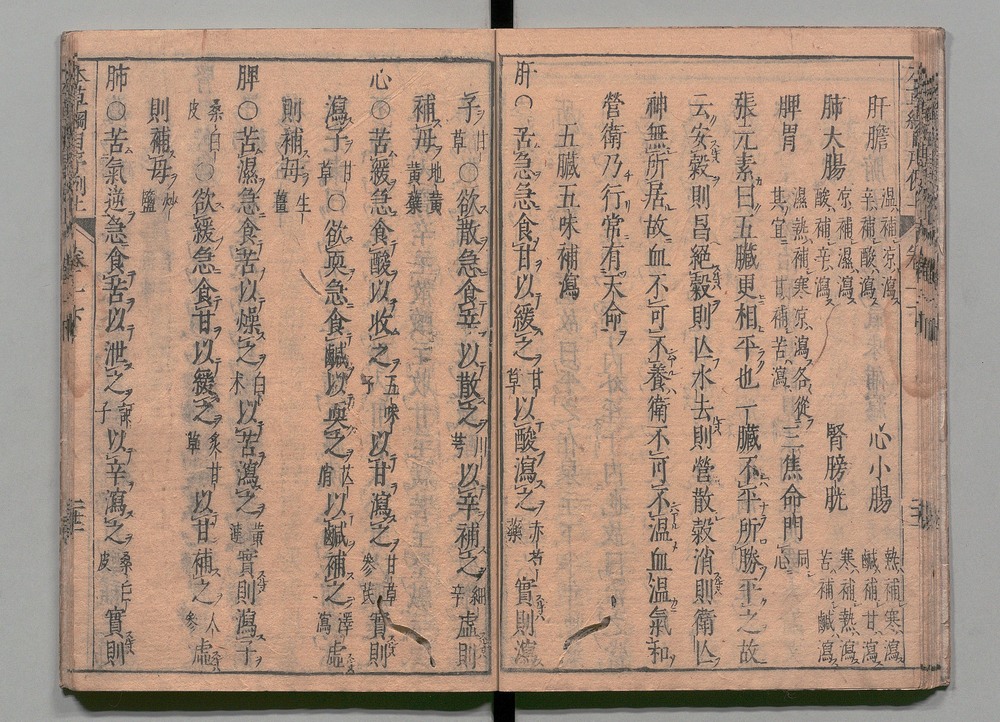 肝膽 溫補涼瀉 辛補酸瀉 心小腸 熱補寒瀉 鹹補甘瀉
肺大腸 涼補溫瀉 酸補辛瀉 腎膀胱 寒補熱瀉 苦補鹹瀉
脾胃 溫熱補寒涼瀉各從其宜 甘補苦瀉 三焦命門 同心
張元素曰五臟更相平也一臟不平所勝平之故
云安穀則昌絕穀則亾水去則營散穀消則衛亾
神無所居故血不可不養衛不可不溫血溫氣和
營衛乃行常有天命
五臟五味補瀉
肝○苦急急食甘以緩之甘草以酸瀉之赤芍實則瀉
子甘草○欲散急食辛以散之川芎以辛補之細辛虛則
補母地黃黃蘗
心○苦緩急食酸以收之五味子以甘瀉之甘草參芪實則
瀉子甘草○欲耎急食鹹以耎之芒硝以鹹補之澤瀉虛
則補母生薑
脾○苦濕急食苦以燥之白朮以苦瀉之黃連實則瀉子
桑白皮○欲緩急食甘以緩之炙甘草以甘補之人參虛
則補母炒鹽
肺○苦氣逆急食苦以泄之訶子以辛瀉之桑白皮實則